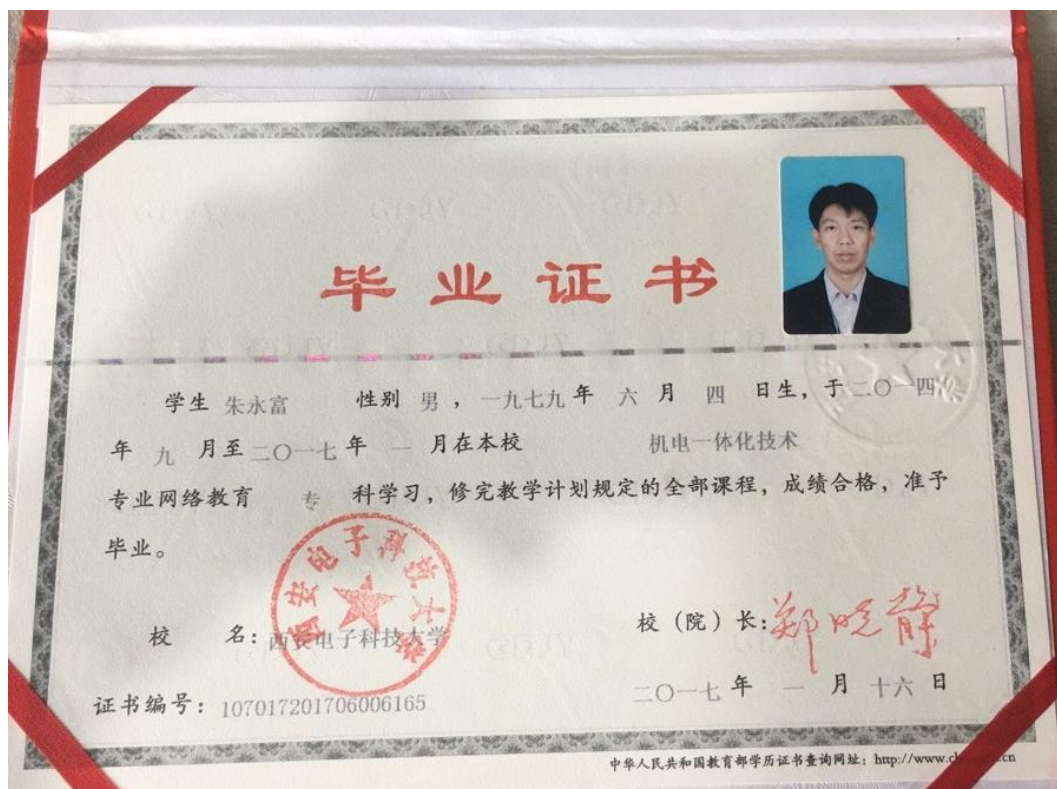 毕业证书
学生 朱永富 性别 男，一九七九年 六 月 四 日生，于二〇一四
年 九 月至二〇一七年 一 月在本校 机电一体化技术
专业网络教育 专 科学习，修完教学计划规定的全部课程，成绩合格，准予
毕业。
西安电子科技大学
校 名：西安电子科技大学
校（院）长：郑晓静
证书编号：107017201706006165
二〇一七年 一 月 十六 日
中华人民共和国教育部学历证书查询网址：http://www.ch